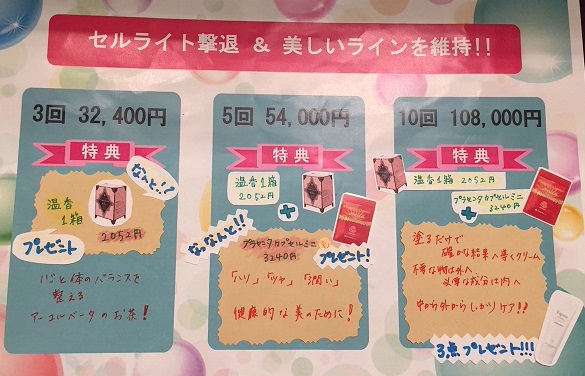 セルライト撃退 & 美しいラインを維持!!
3回 32,400円
特典
なんと!?
温香
1箱
2052円
プレゼント
心と体のバランスを
整える
アーユルベーダのお茶!
5回 54,000円
特典
温香1箱
2052円
+
な、なんと!!
プラセンタカプセルミニ
3240円
プレゼント!
「ハリ」「ツヤ」「潤い」
健康的な美のために!
10回 108,000円
特典
温香1箱 2052円
+
プラセンタカプセルミニ
3240円
塗るだけで
確かな結果へ導くクリーム
不要な物は外へ
必要な成分は内へ
中から外からしっかりケア!!
3点プレゼント!!!